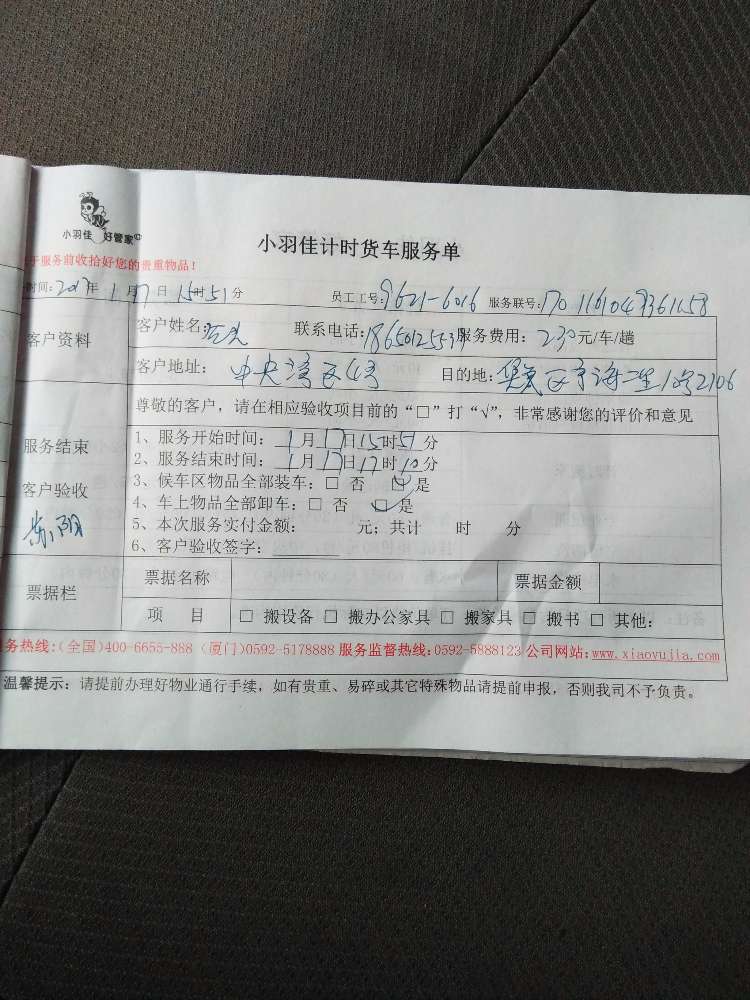 小羽佳 好管家
小羽佳计时货车服务单
于服务前收拾好您的贵重物品！
时间：2017年1月17日15时51分 员工工号：9621-6016 服务联号：
客户资料
客户姓名： 联系电话： 服务费用：230元/车/趟
客户地址：中央湾区 目的地：
尊敬的客户，请在相应验收项目前的“□”打“√”，非常感谢您的评价和意见
服务结束
客户验收
1、服务开始时间：1月17日15时51分
2、服务结束时间：1月17日17时10分
3、候车区物品全部装车：□ 否 ☑ 是
4、车上物品全部卸车：□ 否 ☑ 是
5、本次服务实付金额： 元；共计 时 分
6、客户验收签字：
票据栏
票据名称 票据金额
项 目 □ 搬设备 □ 搬办公家具 □ 搬家具 □ 搬书 □ 其他：
务热线：(全国)400-6655-888 (厦门)0592-5178888 服务监督热线：0592-5888123 公司网站：www.xiaoyujia.com
温馨提示：请提前办理好物业通行手续，如有贵重、易碎或其它特殊物品请提前申报，否则我司不予负责。